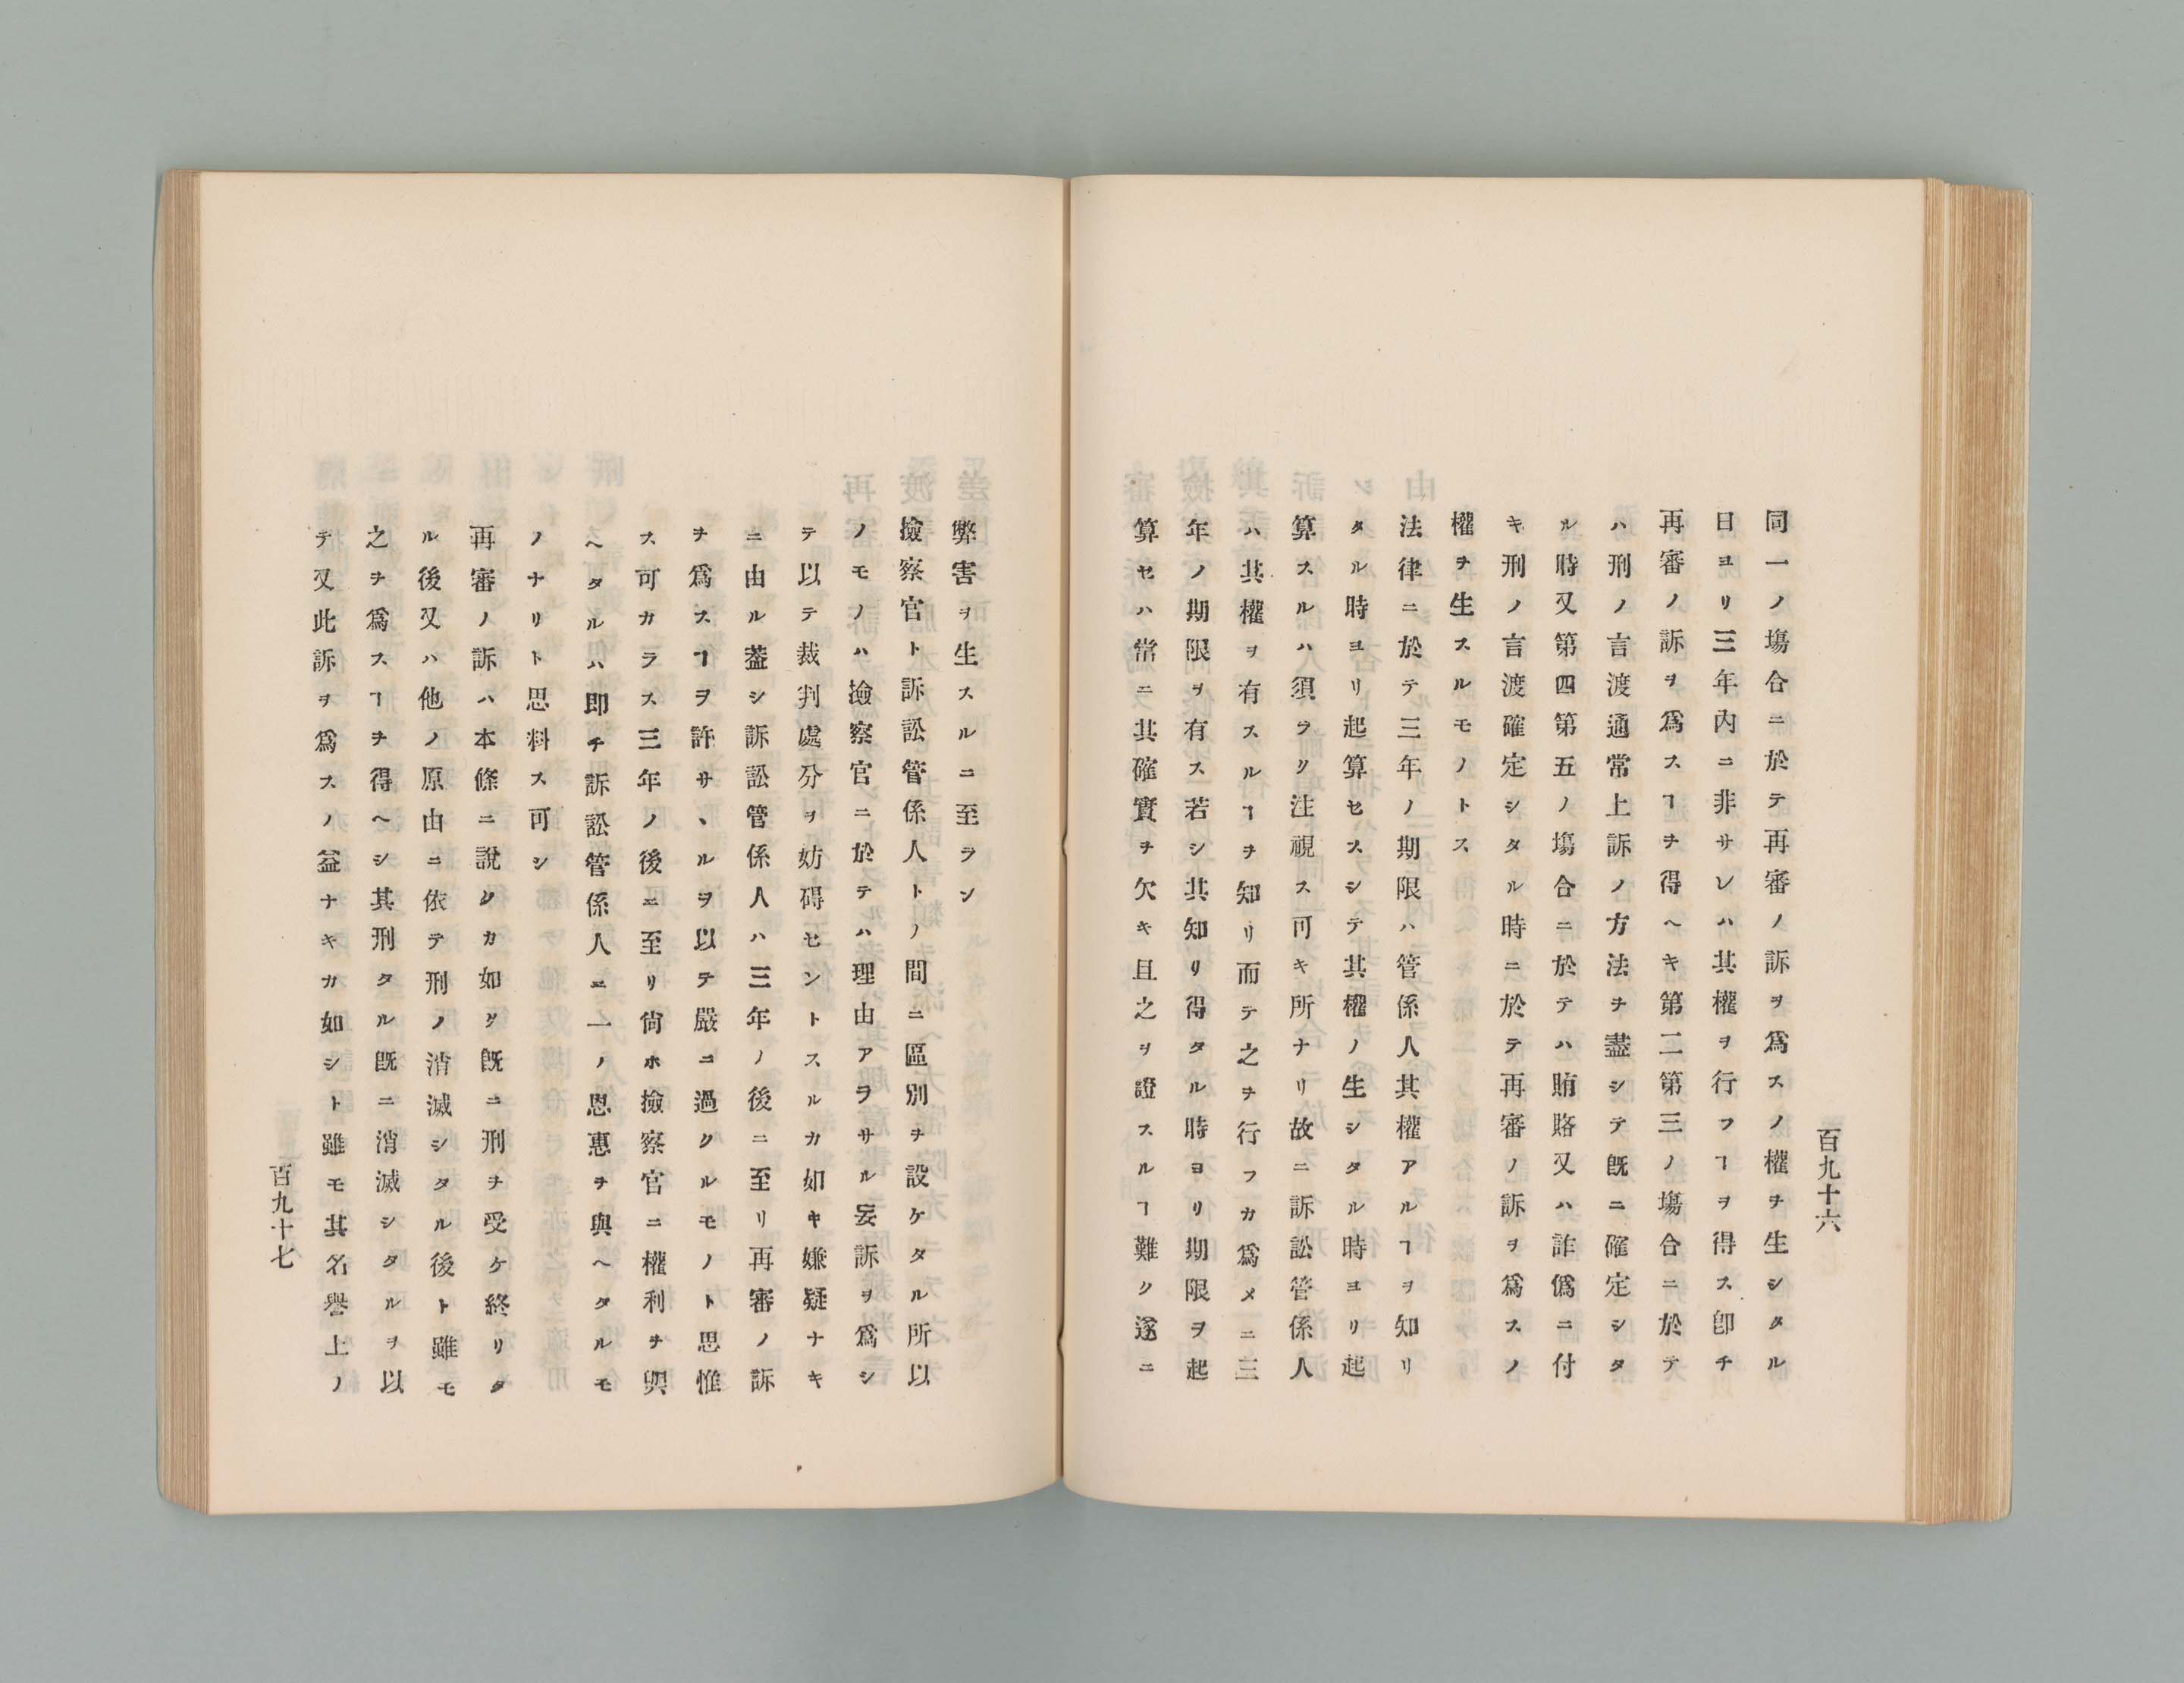 百九十六
同一ノ塲合ニ於テ再審ノ訴ヲ爲スノ權ヲ生シタル
日ヨリ三年內ニ非サレハ其權ヲ行フヿヲ得ス卽チ
再審ノ訴ヲ爲スヿヲ得ヘキ第二第三ノ塲合ニ於テ
ハ刑ノ言渡通常上訴ノ方法ヲ盡シテ旣ニ確定シタ
ル時又第四第五ノ塲合ニ於テハ賄賂又ハ詐僞ニ付
キ刑ノ言渡確定シタル時ニ於テ再審ノ訴ヲ爲スノ
權ヲ生スルモノトス
法律ニ於テ三年ノ期限ハ管係人其權アルヿヲ知リ
タル時ヨリ起算セスシテ其權ノ生シタル時ヨリ起
算スルハ須ラク注視ス可キ所ナリ故ニ訴訟管係人
ハ其權ヲ有スルヿヲ知リ而テ之ヲ行フカ爲メニ三
年ノ期限ヲ有ス若シ其知リ得タル時ヨリ期限ヲ起
算セハ常ニ其確實ヲ欠キ且之ヲ證スルヿ難ク遂ニ
弊害ヲ生スルニ至ラン
撿察官ト訴訟管係人トノ間ニ區別ヲ設ケタル所以
ノモノハ撿察官ニ於テハ理由アラサル妄訴ヲ爲シ
テ以テ裁判處分ヲ妨碍セントスルカ如キ嫌疑ナキ
ニ由ル葢シ訴訟管係人ハ三年ノ後ニ至リ再審ノ訴
ヲ爲スヿヲ許サヽルヲ以テ嚴ニ過クルモノト思惟
ス可カラス三年ノ後ニ至リ尙ホ撿察官ニ權利ヲ與
ヘタルハ卽チ訴訟管係人ニ一ノ恩惠ヲ與ヘタルモ
ノナリト思料ス可シ
再審ノ訴ハ本條ニ說クカ如ク旣ニ刑ヲ受ケ終リタ
ル後又ハ他ノ原由ニ依テ刑ノ消滅シタル後ト雖モ
之ヲ爲スヿヲ得ヘシ其刑タル旣ニ消滅シタルヲ以
テ又此訴ヲ爲スノ益ナキカ如シト雖モ其名譽上ノ
百九十七